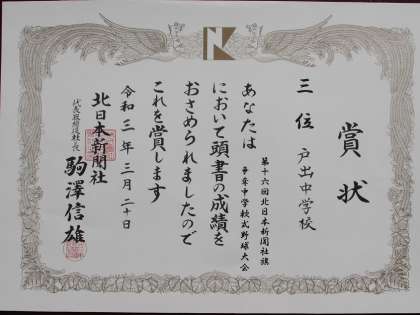 賞状
三位 戸出中学校
あなたは
第十六回北日本新聞社旗
争奪中学軟式野球大会
において頭書の成績を
おさめられましたので
これを賞します
令和三年三月二十日
北日本新聞社
代表取締役社長 駒澤信雄